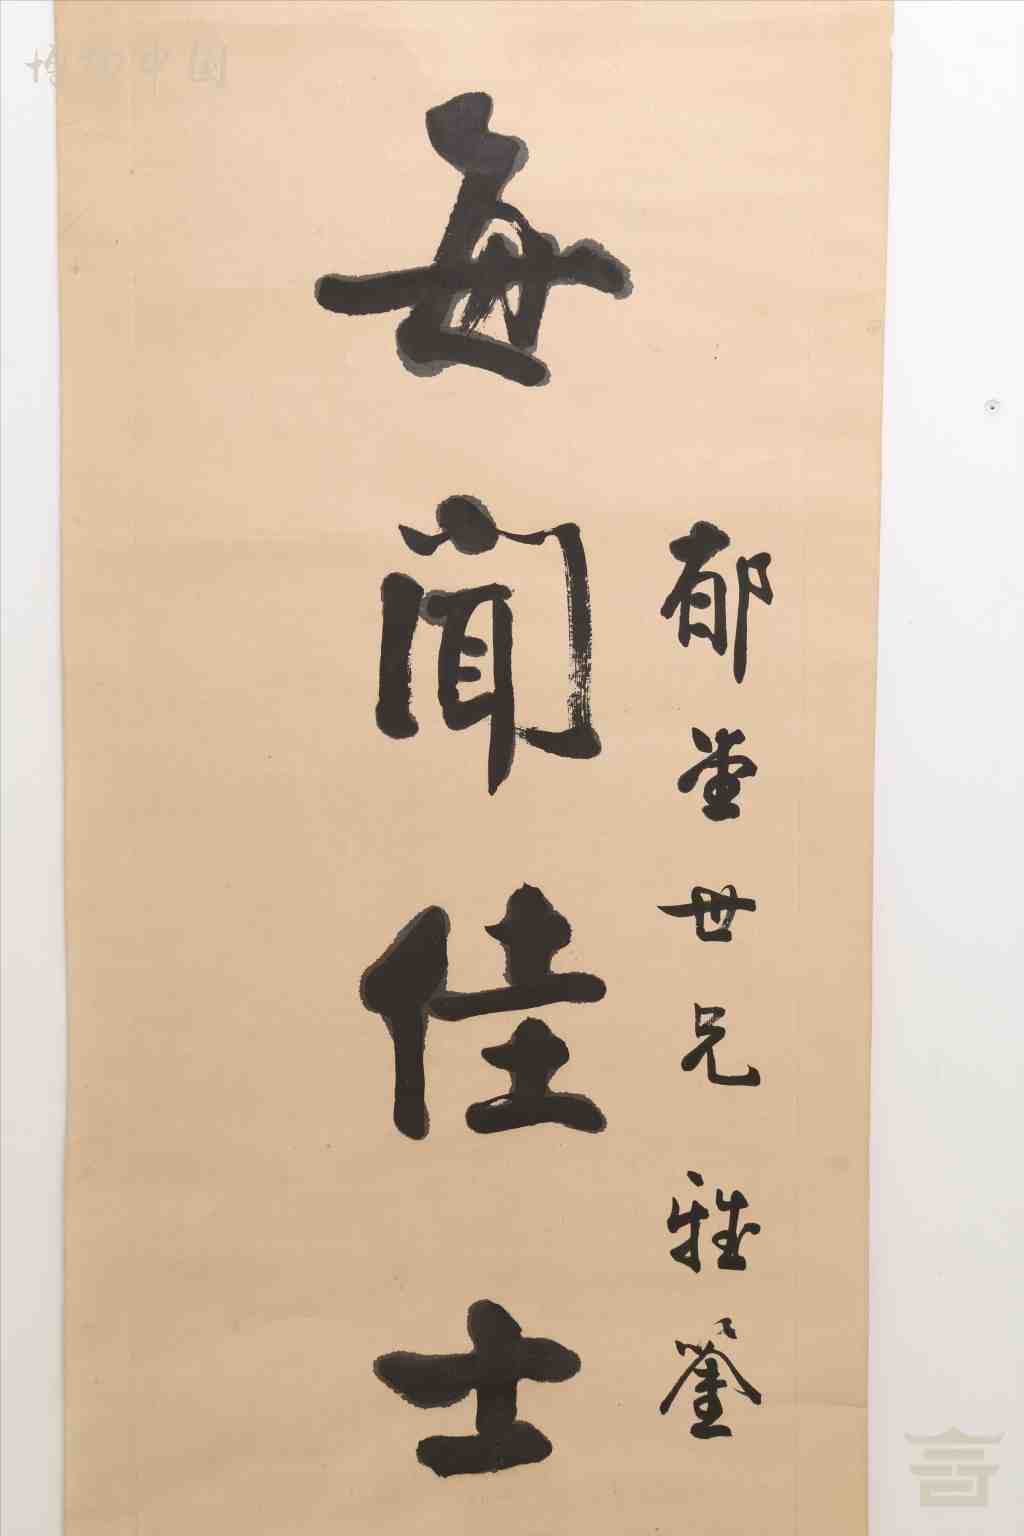 郁堂世兄雅鉴
每闻佳士
博物中国